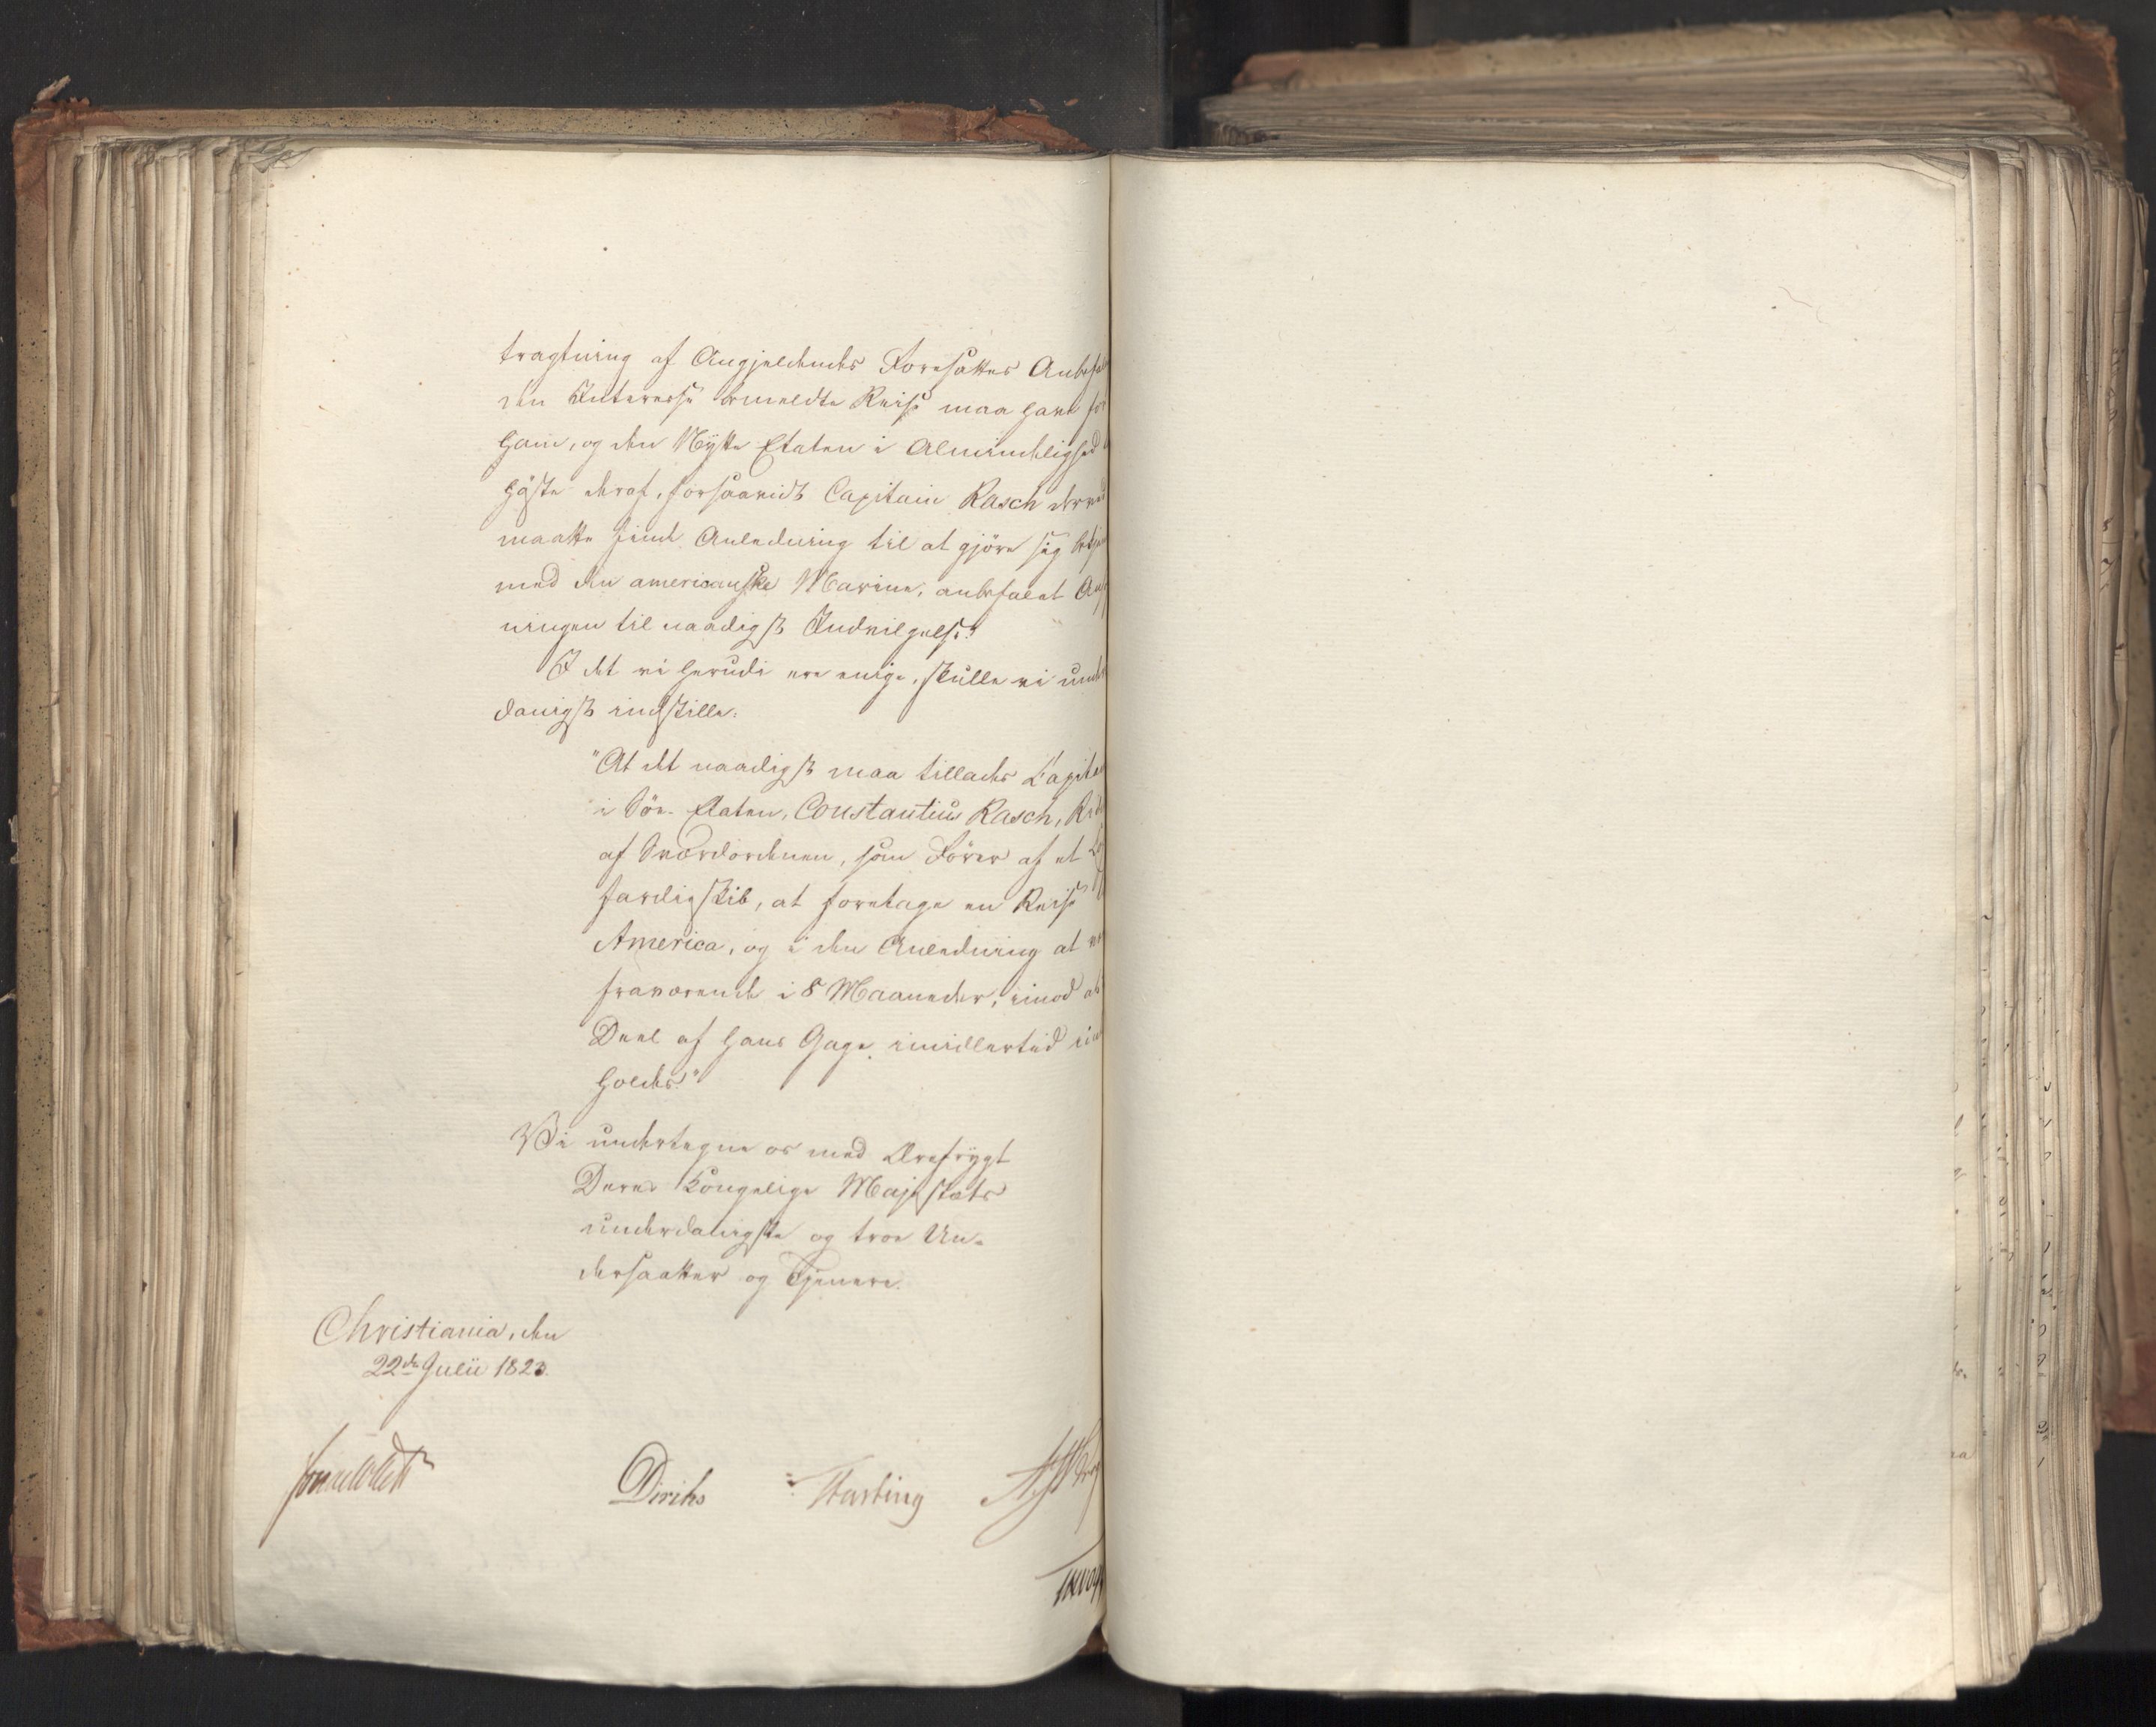 tragtning af Angjeldendes Foresattes Anbefa
den Interesse bemeldte Reise maa have for
ham, og den Nytte Etaten i Almindelighed
høste deraf, forsaavidt Capitain Rasch derved
maatte finde Anledning til at gjøre sig bekjen
med den americanske Marine, anbefalet An
ningen til naadigst Indvilgelse.
I det vi herudi ere enige, skulle vi under
danigst indstille:
"At det naadigst maa tillades Capitai
i Søe-Etaten, Constantius Rasch, Rid
af Sværdordenen, som Fører af et Co
fardieskib, at foretage en Reise
America, og i den Anledning at
fraværende i 8 Maaneder, imod at
Deel af hans Gage imidlertid in
holdes."
Vi undertegne os med Ærefrygt
Deres Kongelige Majestæts
underdanigste og troe Un-
dersaatter og Tjenere.
Christiania, den
22de Julii 1823.
Sommerfeldt Diriks Fasting